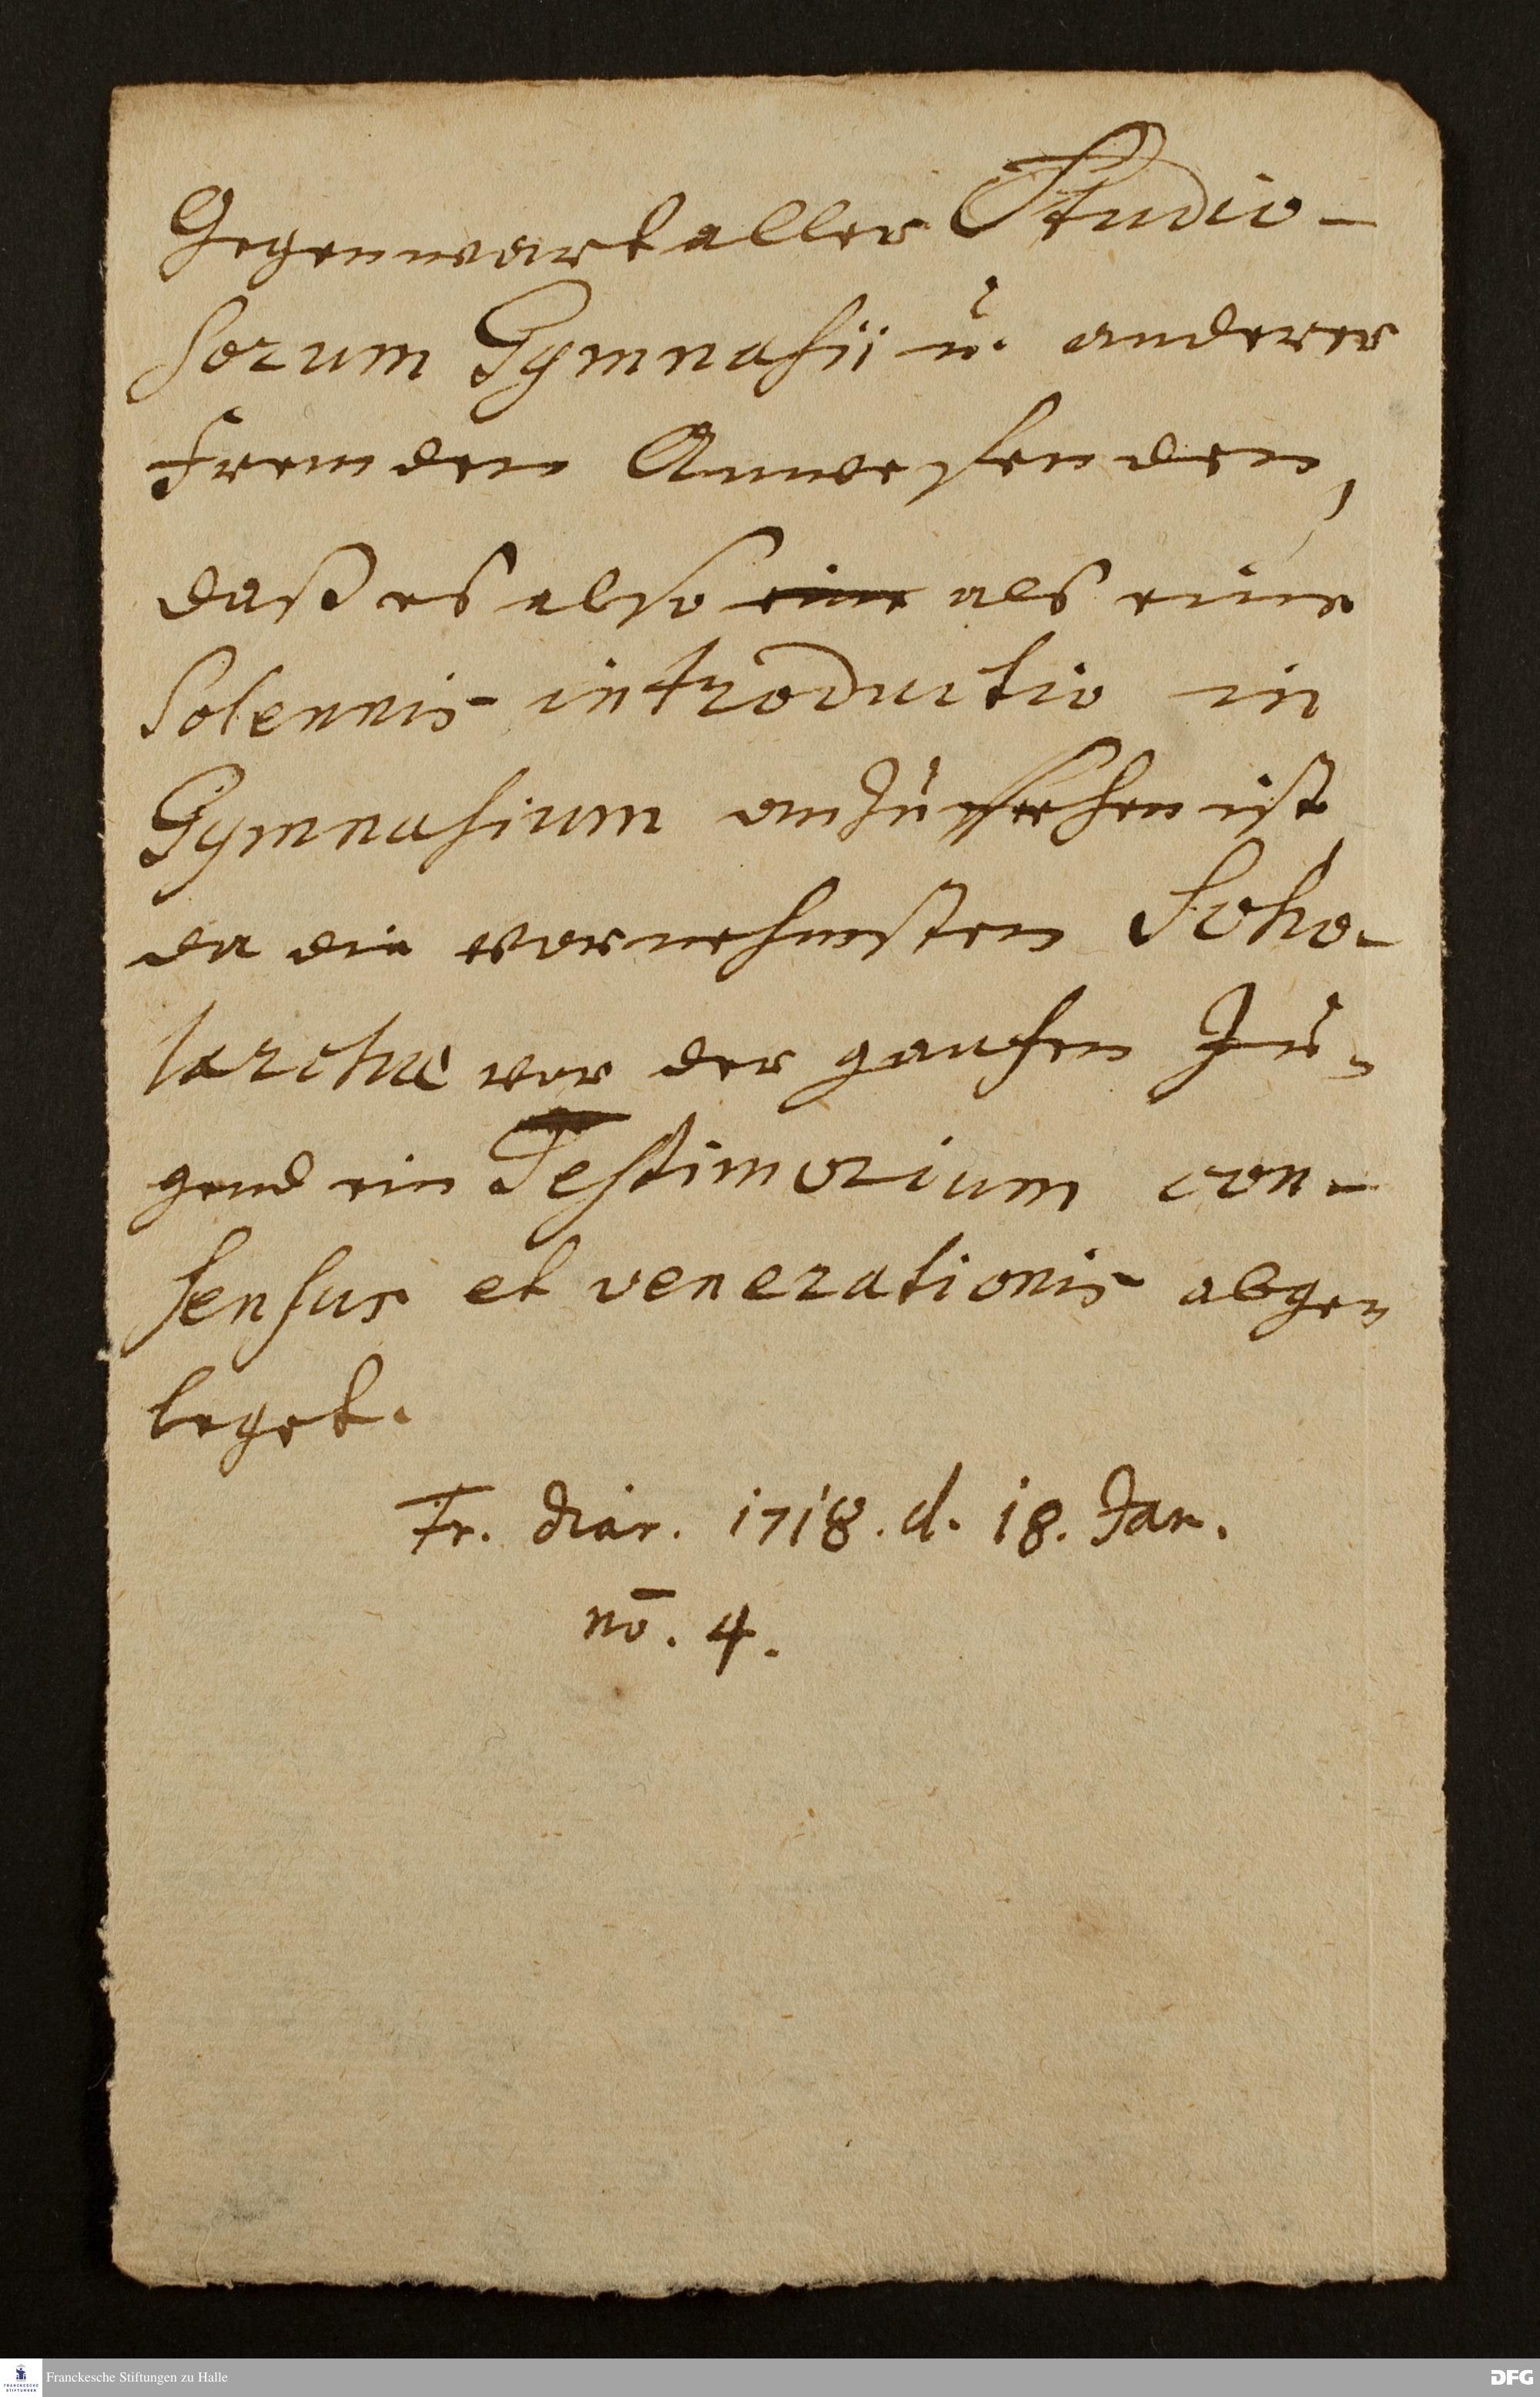 Gegenwart aller Studio-
sorum Gymnasii u. anderer
fremden Anwesenden,
daß es also eine als eine
Solennis introductio in
Gymnasium anzusehen ist
da die vornehmsten Scho-
larchae vor der gantzen Ju-
gend ein Testimonium con-
sensus et venerationis abge-
leget.
Fr. diar. 1718. d. 18. Jan.
no. 4.
Franckesche Stiftungen zu Halle
FRANCKESCHE STIFTUNGEN
DFG